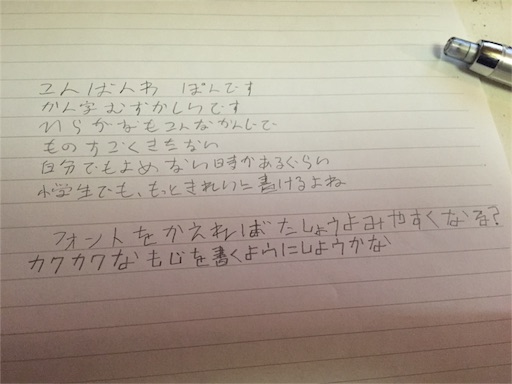 こんばんわ ぱんです
かん字むずかしいです
ひらがなもこんなかんじで
ものすごくきたない
自分でもよめない時があるぐらい
小学生でも、もっときれいに書けるよね
フォントをかえればたしょうよみやすくなる?
カクカクなもじを書くようにしようかな